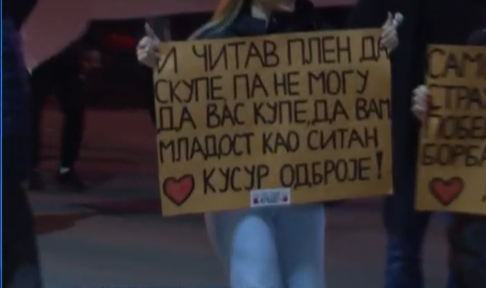 И ЧИТАВ ПЛЕН ДА
СКУПЕ, ПА НЕ МОГУ
ДА ВАС КУПЕ, ДА ВАМ
МЛАДОСТ КАО СИТАН
КУСУР ОДБРОЈЕ!
САМО
СТРАХ
БОРБА